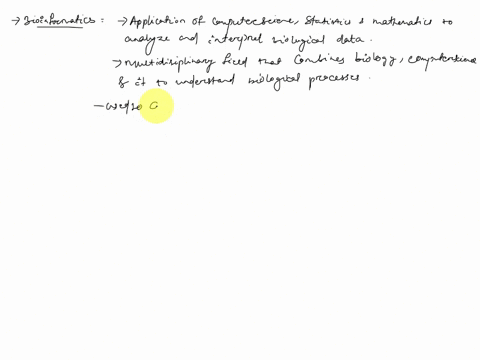 → Bioinformatics : → Application of computer science, statistics & mathematics to
analyze and interpret biological data.
→ Multidisiplinary field that combines biology, computer science
& it to understand biological processes.
– used to a